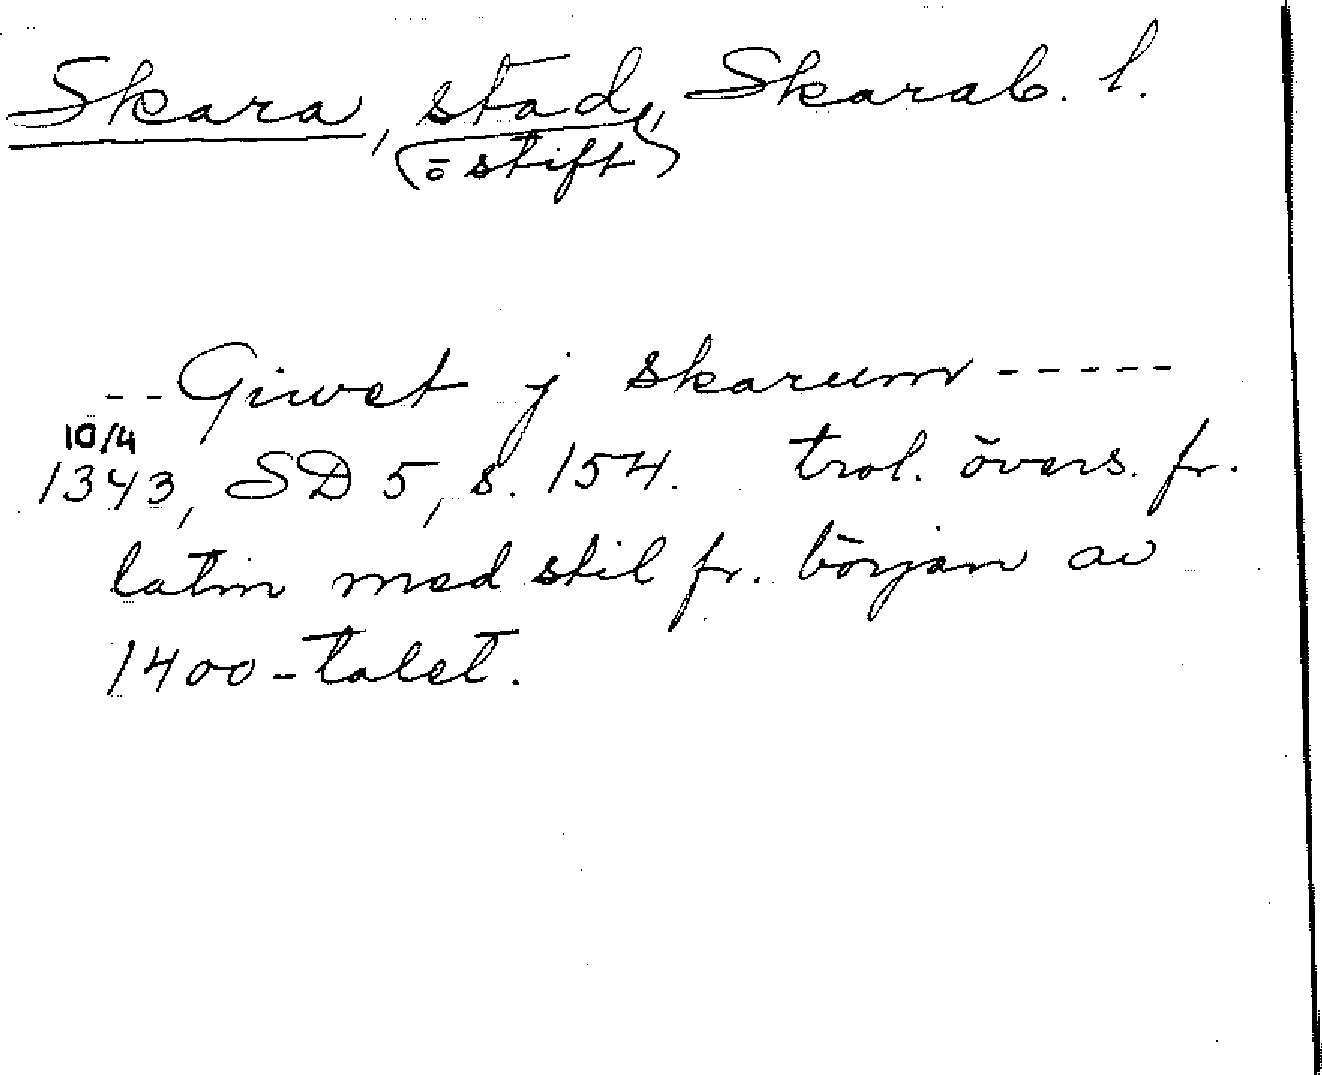 Skara, stad, Skarab. l.
(o stift)
--Giwet j skarum-----
10/4
1343, SD 5, s. 154. trol. övers. fr.
latin med stil fr. början av
1400-talet.